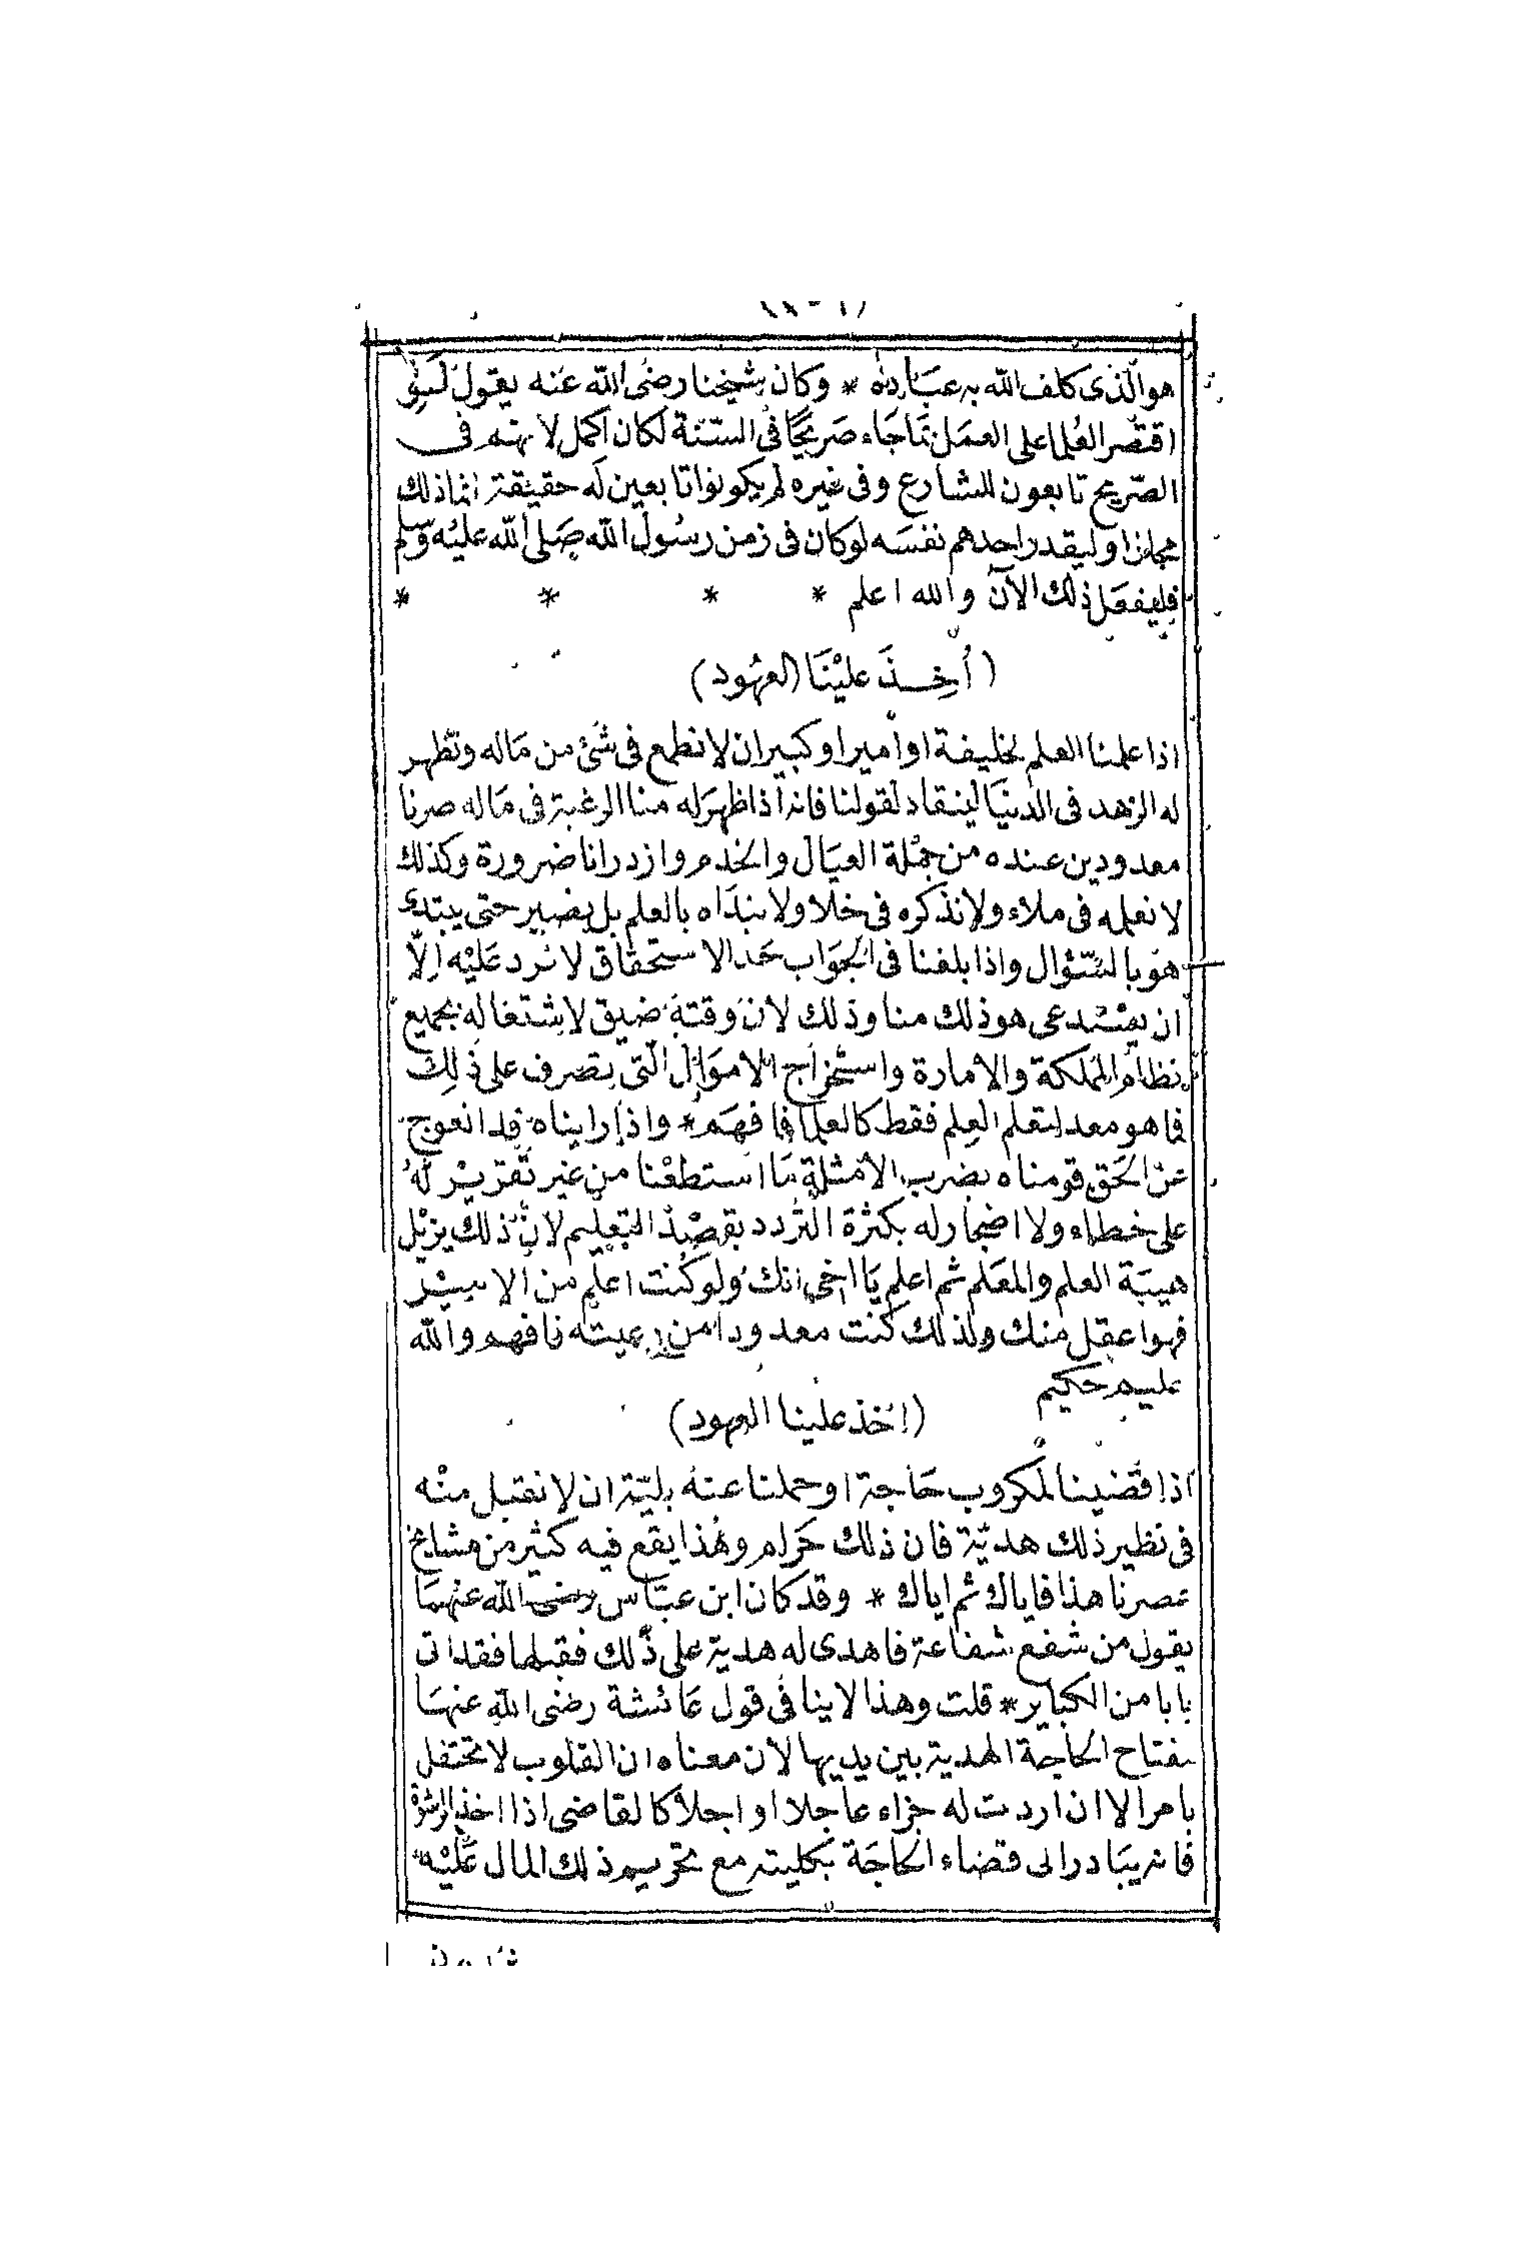 هو الّذى كلف الله به عبَاده * وكان شيخنا رضى الله عنه يقول لَو
اقتصر العُلما على العمَل بمَا جَاء صَريحًا فى السّنة لكان اكمل لانهم فى
الصّريح تابعون للشارع وفى غيره لم يكونوا تابعين له حقيقة انما ذلك
مجازا وليقدر احدهم نفسَه لو كان فى زمن رسُول الله صَلى الله عليْه وَسلم
فليفعَل ذلك الآن والله اعلم * * * *
(أُخِذَ عليْنَا العهُود)
اذا علمنا العلم لخليفة او أمير او كبير ان لا نطمع فى شئ من مَاله ونظهر
له الزهد فى الدنيَا لينقاد لقولنا فانه اذا ظهرَ له منا الرغبة فى مَاله صرنا
معدودين عنده من جمْلة العيَال والخدم وازدرانا ضرورة وكذلك
لا نعلمه فى ملاء ولا نذكره فى خلا ولا نبدَاه بالعلم بل يصير حتى يبتدى
هوَ بالسّؤال واذا بلغنا فى الجوَاب حَد الاستحقاق لا نرد عَليْه الّا
ان يستدعى هو ذلك منا وذلك لان وقته ضيق لاشتغاله بجميع
نظام المملكة والامارة واستخراج الاموَال الّتى يتصرف على ذلِك
فما هو معد لتعلم العِلم فقط كالعلما فافهَم * واذا رايناه قد انعوج
عن الحَق قومناه بضرب الامثلة مَا استطعْنا من غير تقريْر لهُ
على خطاء ولا اضجار له بكثرة التّردد بقصْد التعليم لانّ ذلك يزيْل
هيبَة العلم والمعَلم ثم اعلم يَا اخى انك ولو كُنت اعلم من الاميْر
فهو اعقل منك ولذلك كنت معدودا من رعيته فافهم والله
عليم حكيم
(اخذ علينا العهود)
اذا قضينا لمكروب حَاجة او حملنا عنهُ بليّة ان لا نقبل منْه
فى نظير ذلك هديّة فان ذلك حَرام وهُذا يقع فيه كثير من مشايخ
عصرنا هذا فاياك ثم اياك * وقد كان ابن عبّاس رضى الله عنهمَا
يقول من شفع شفاعة فاهدى له هدية على ذلك فقبلها فقد اتى
بابا من الكباير * قلت وهذا لا ينافى قول عَائشة رضى الله عنهَا
مفتاح الحاجة الهدية بين يديها لان معناه ان القلوب لا تحتفل
بامر الا ان اردت له جزاء عاجلا او اجلا كالقاضى اذا اخذ الرشوة
فانه يبَادر الى قضاء الحاجَة بكليته مع تحريم ذلك المال عَليْه